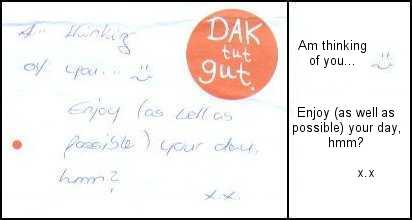 A.. thinking
of you...
Enjoy (as well as
possible) your day,
hmm?
x.x.
DAK
tut
gut.
Am thinking
of you...
Enjoy (as well as
possible) your day,
hmm?
x.x